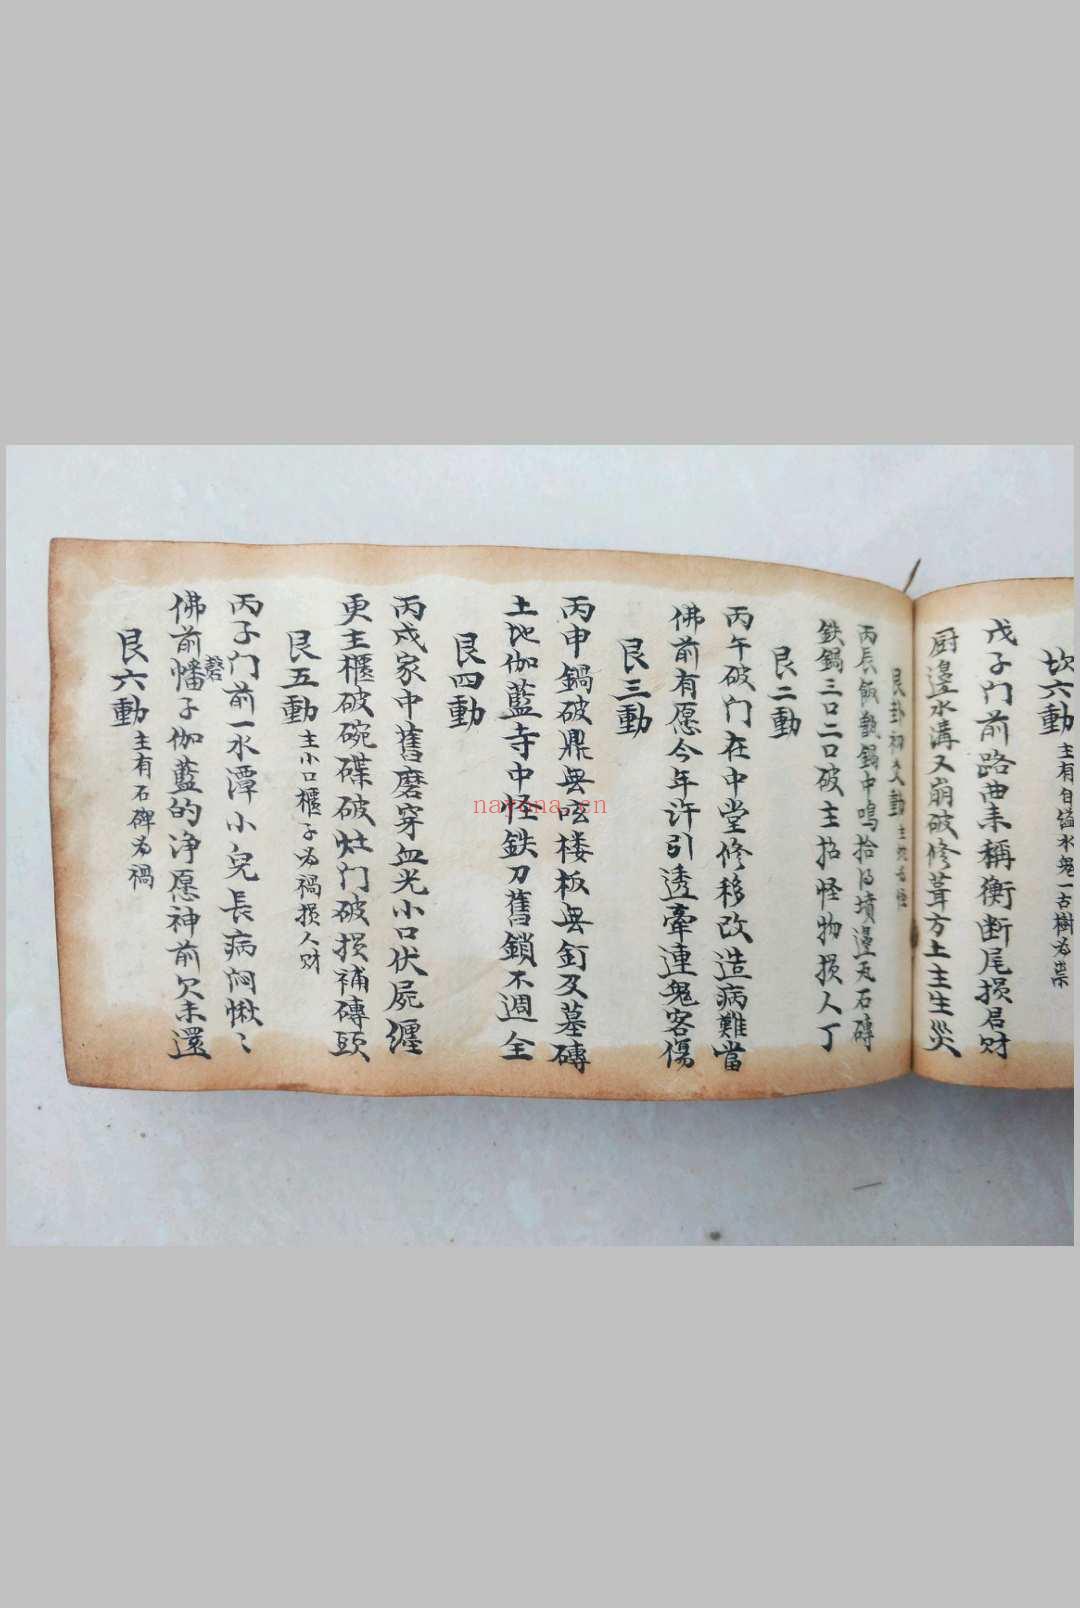 坎六動 主有自缢水鬼一古樹为祟
戊子门前路曲耒稱衡断尾損君财
厨邊水溝又崩破修葺方土主生災
艮卦初爻動 主
丙辰飯甑鍋中鳴拾得墳邊瓦石磚
鉄鍋三口二口破主招怪物損人丁
艮二動
丙午破门在中堂修移改造病難當
佛前有愿今年许引透牽連鬼客傷
艮三動
丙申鍋破鼎無吆楼板無釘及墓磚
土地伽藍寺中怪鉄刀舊鎖不週全
艮四動
丙戍家中舊磨穿血光小口伏屍纏
更主櫃破碗碟破灶门破損補磚頭
艮五動 主小口櫃子为禍損人财
丙子门前一水潭小兒長病悶愀〻
佛前幡磬子伽藍的净愿神前欠未還
艮六動 主有石碑为禍
nayona.cn